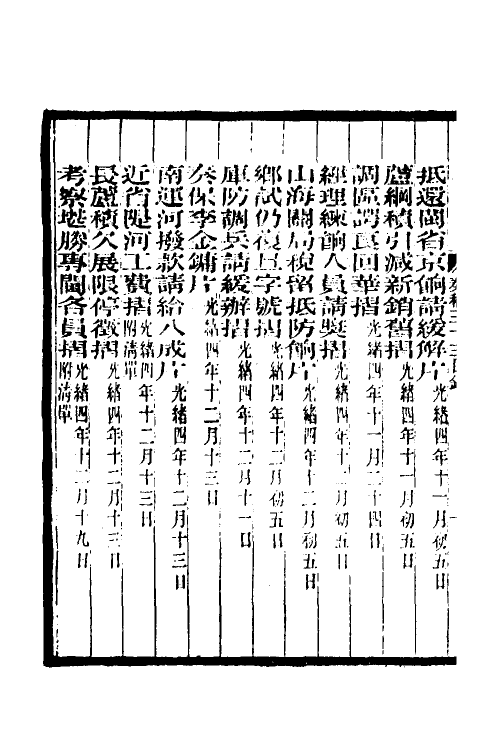 抵還閩省京餉請緩解片光緒四年十一月初五日
蘆綱積引減新銷舊摺光緒四年十一月初五日
調區諤良回華摺光緒四年十一月二十四日
經理練餉人員請獎摺光緒四年十二月初五日
山海關局稅留抵防餉片光緒四年十二月初五日
鄉試仍復旦字號摺光緒四年十二月初五日
庫防調兵請緩辦摺光緒四年十二月十一日
奏保李金鏞片光緒四年十二月十三日
南運河撥款請給八成片光緒四年十二月十三日
近省隄河工費摺附清單光緒四年十二月十三日
長蘆積欠展限停徵摺光緒四年十二月十三日
考察堪勝專閫各員摺附清單光緒四年十二月十九日